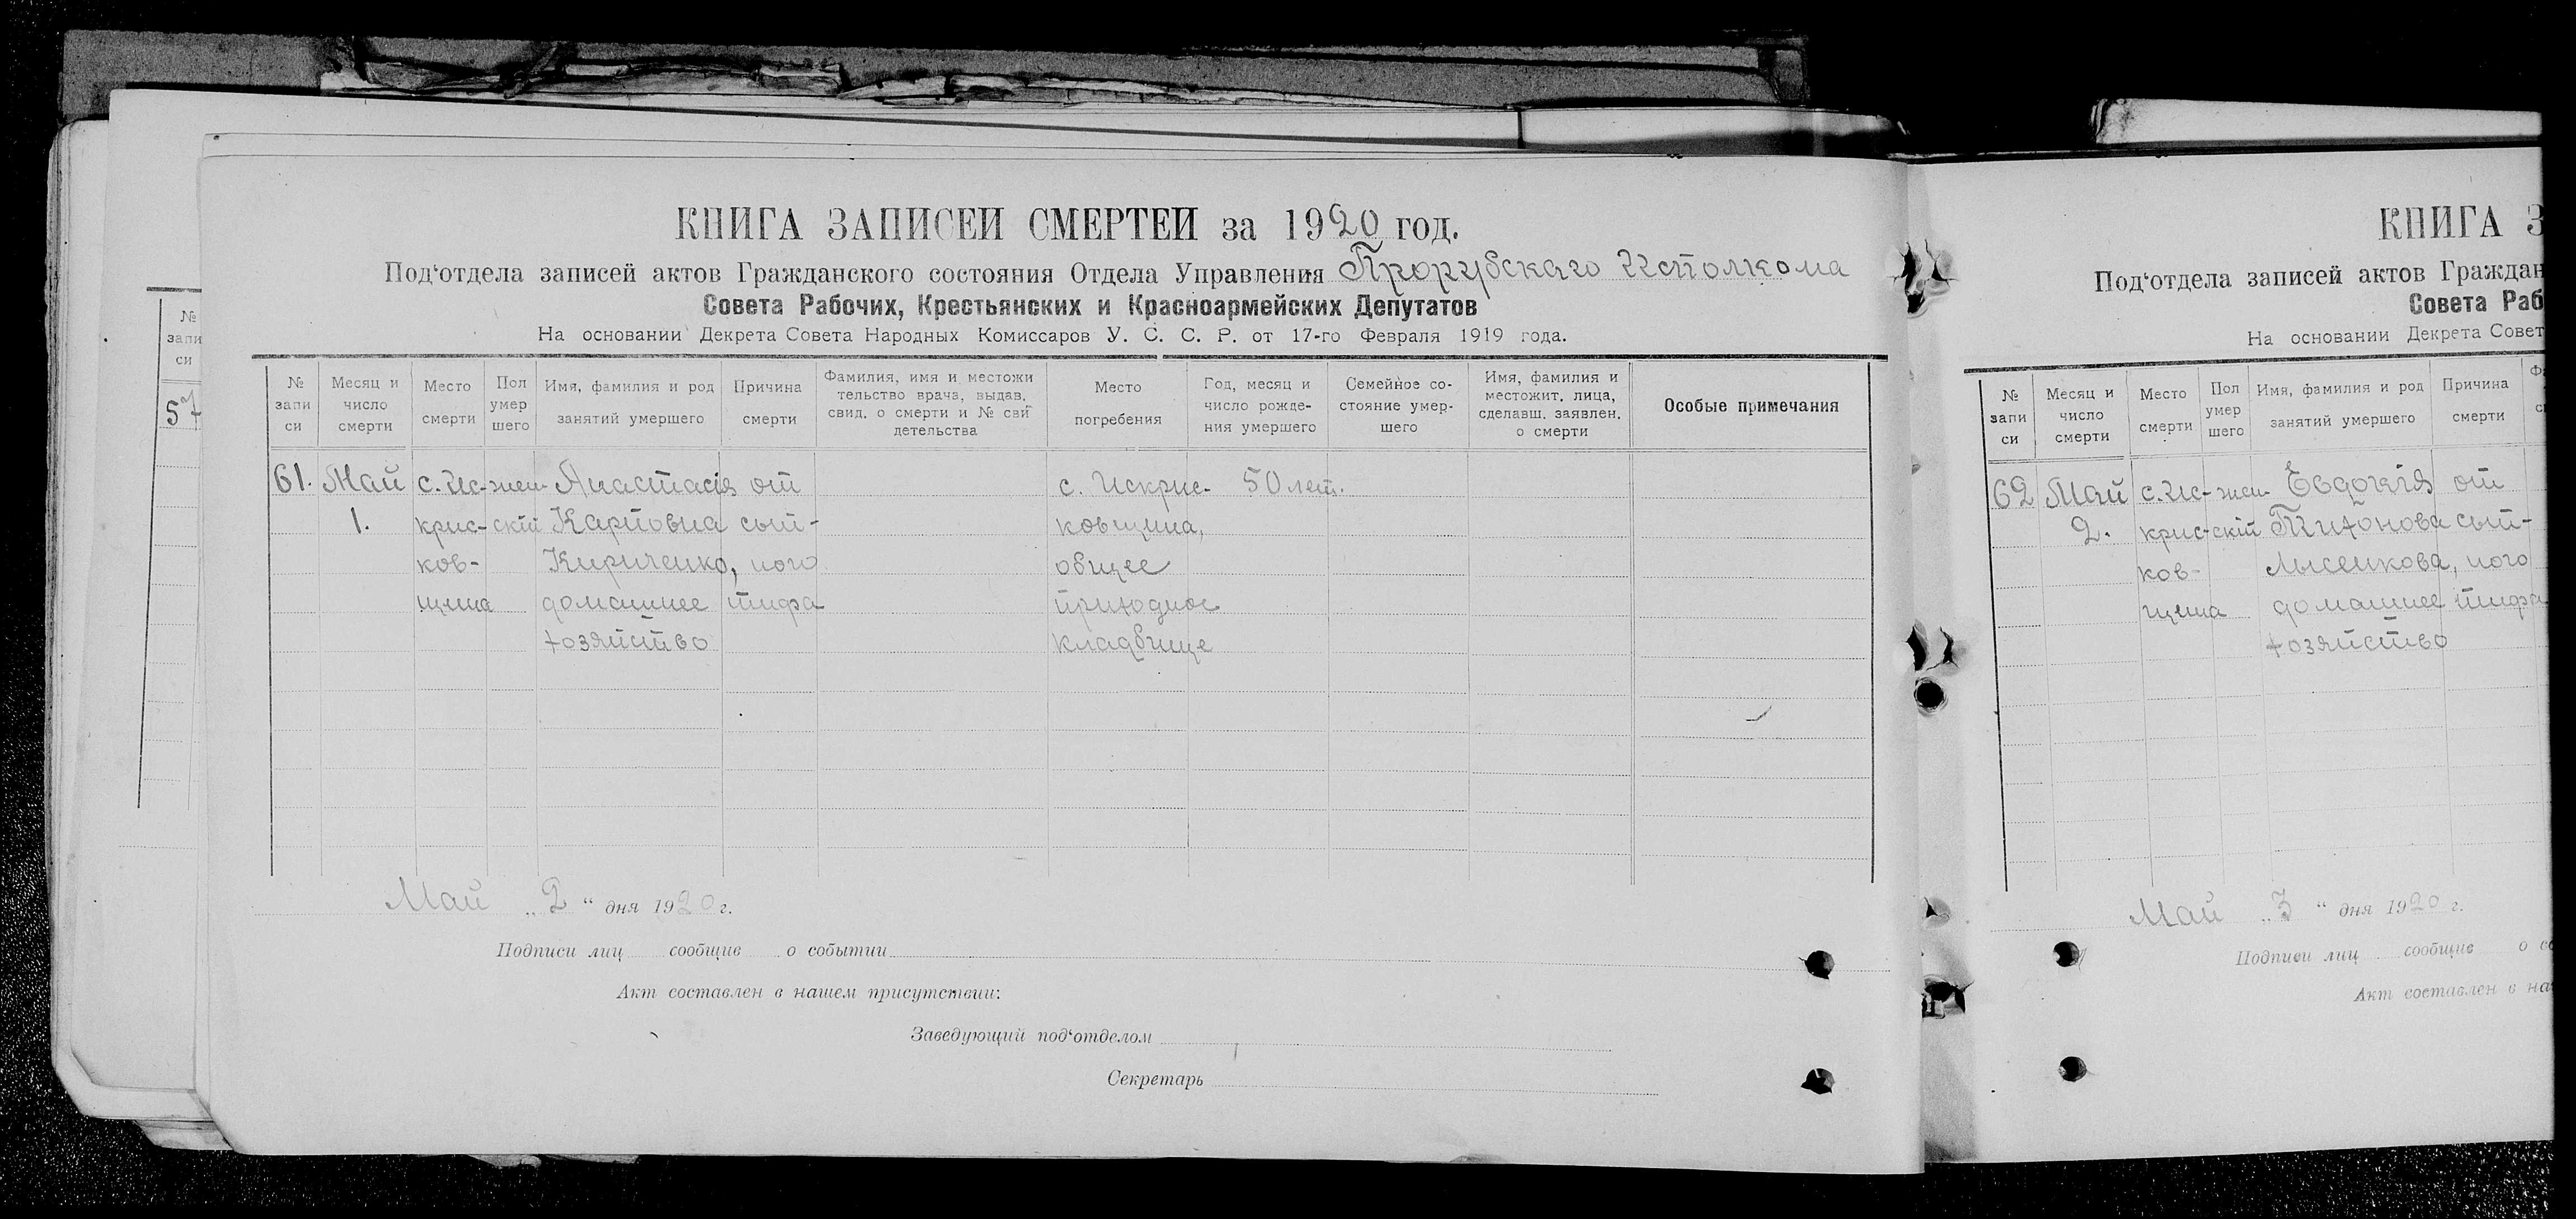 КНИГА ЗАПИСЕЙ СМЕРТЕЙ за 1920 год.
Под‘отдела записей актов Гражданского состояния Отдела Управления Прорубскаго Исполкома
Совета Рабочих, Крестьянских и Красноармейских Депутатов
На основании Декрета Совета Народных Комиссаров У. С. С. Р. от 17-го Февраля 1919 года.
№ запи си
Месяц и число смерти
Место смерти
Пол умер шего
Имя, фамилия и род занятий умершего
Причина смерти
Фамилия, имя и местожи тельство врача, выдав. свид. о смерти и № сви детельства
Место погребения
Год, месяц и число рожде- ния умершего
Семейное со- стояние умер- шего
Имя, фамилия и местожит. лица, сделавш. заявлен. о смерти
Особые примечания
61. Май с. Ис- жен- Анастасія от с. Искрис- 50 лет.
1. крис- скій Карповна сып- ковщина,
ков- Кириченко, ного общее
щина домашнее тифа приходное
хозяйство кладбище
Май „2“ дня 1920 г.
Подписи лиц сообщив о событии
Акт составлен в нашем присутствии:
Заведующий под‘отделом
Секретарь
№
запи
си
57
КНИГА З
Под‘отдела записей актов Граждан
Совета Раб
На основании Декрета Совет
№ запи си
Месяц и число смерти
Место смерти
Пол умер шего
Имя, фамилия и род занятий умершего
Причина смерти
62 Май с. Ис- жен- Евдокія от
2. крис- скій Тихонова сып-
ков- Лысенкова, ного
щина домашнее тифа
хозяйство
Май „3“ дня 1920 г.
Подписи лиц сообщив о со
Акт составлен в на